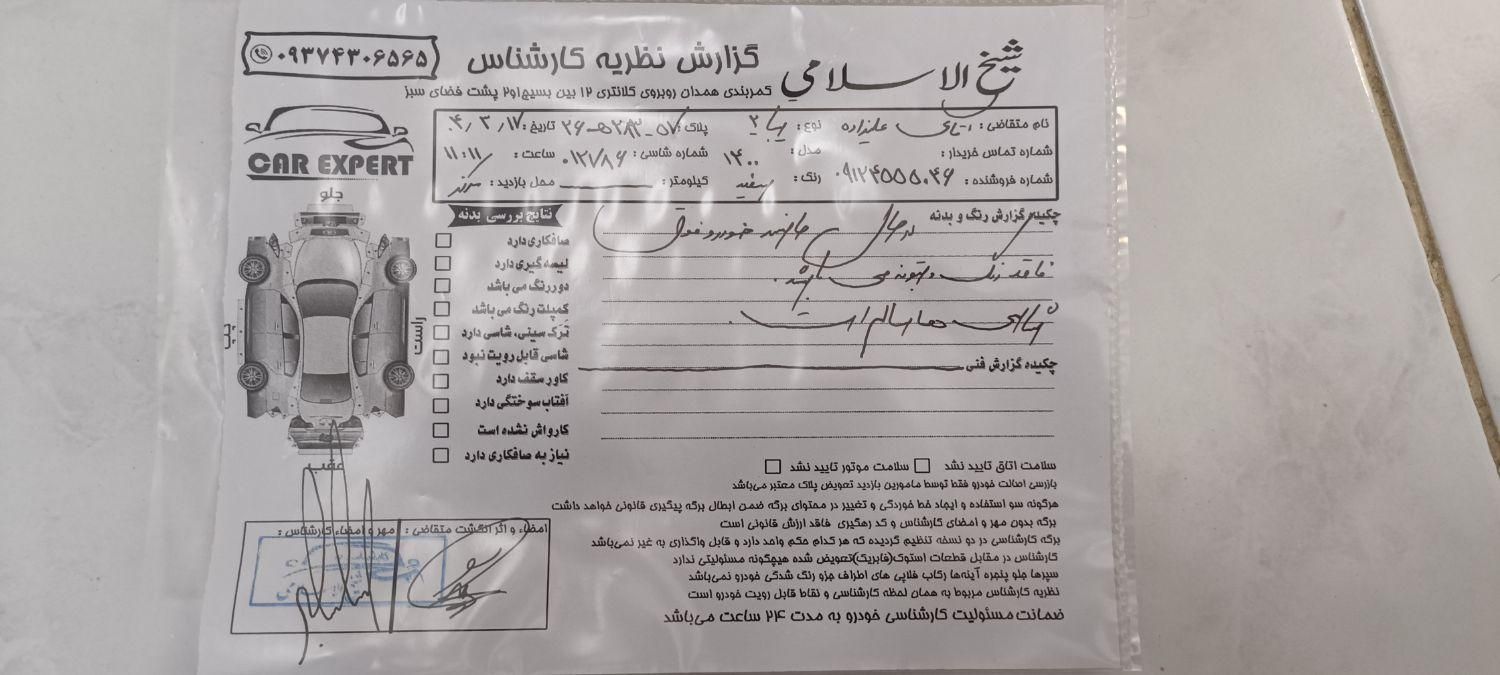 شیخ الاسلامی
گزارش نظریه کارشناس
۰۹۳۷۴۳۰۶۵۶۵
کمربندی همدان روبروی کلانتری ۱۲ بین بسیج۱و۲ پشت فضای سبز
نام متقاضی : آقای علیزاده نوع : سایپا ۲ پلاک : تاریخ : ۰۴/۳/۱۷
شماره تماس خریدار : مدل : ۱۴۰۰ شماره شاسی : ۰۱۲۱۷۸۶ ساعت : ۱۱:۱۱
شماره فروشنده : ۰۹۱۲۴۵۵۵۰۴۶ رنگ : سفید کیلومتر : محل بازدید : مرکز
CAR EXPERT
جلو
راست
چپ
عقب
نتایج بررسی بدنه
صافکاری دارد
لیسه گیری دارد
دوررنگ می باشد
کمپلت رنگ می باشد
تَرَک سینی، شاسی دارد
شاسی قابل رویت نبود
کاور سقف دارد
آفتاب سوختگی دارد
کارواش نشده است
نیاز به صافکاری دارد
چکیده گزارش رنگ و بدنه در حال حاضر خودرو فوق
فاقد رنگ و بتونه می باشد.
شاسی ها سالم است.
چکیده گزارش فنی
سلامت اتاق تایید نشد سلامت موتور تایید نشد
بازرسی اصالت خودرو فقط توسط مامورین بازدید تعویض پلاک معتبر می‌باشد
هرگونه سو استفاده و ایجاد خط خوردگی و تغییر در محتوای برگه ضمن ابطال برگه پیگیری قانونی خواهد داشت
برگه بدون مهر و امضای کارشناس و کد رهگیری فاقد ارزش قانونی است
برگه کارشناسی در دو نسخه تنظیم گردیده که هر کدام حکم واحد دارد و قابل واگذاری به غیر نمی‌باشد
کارشناس در مقابل قطعات استوک(فابریک)تعویض شده هیچگونه مسئولیتی ندارد
سپرها جلو پنجره آینه‌ها رکاب فلاپی های اطراف جزو رنگ شدگی خودرو نمی‌باشد
نظریه کارشناس مربوط به همان لحظه کارشناسی و نقاط قابل رویت خودرو است
ضمانت مسئولیت کارشناسی خودرو به مدت ۲۴ ساعت می‌باشد
امضاء و اثر انگشت متقاضی :
مهر و امضاء کارشناس :